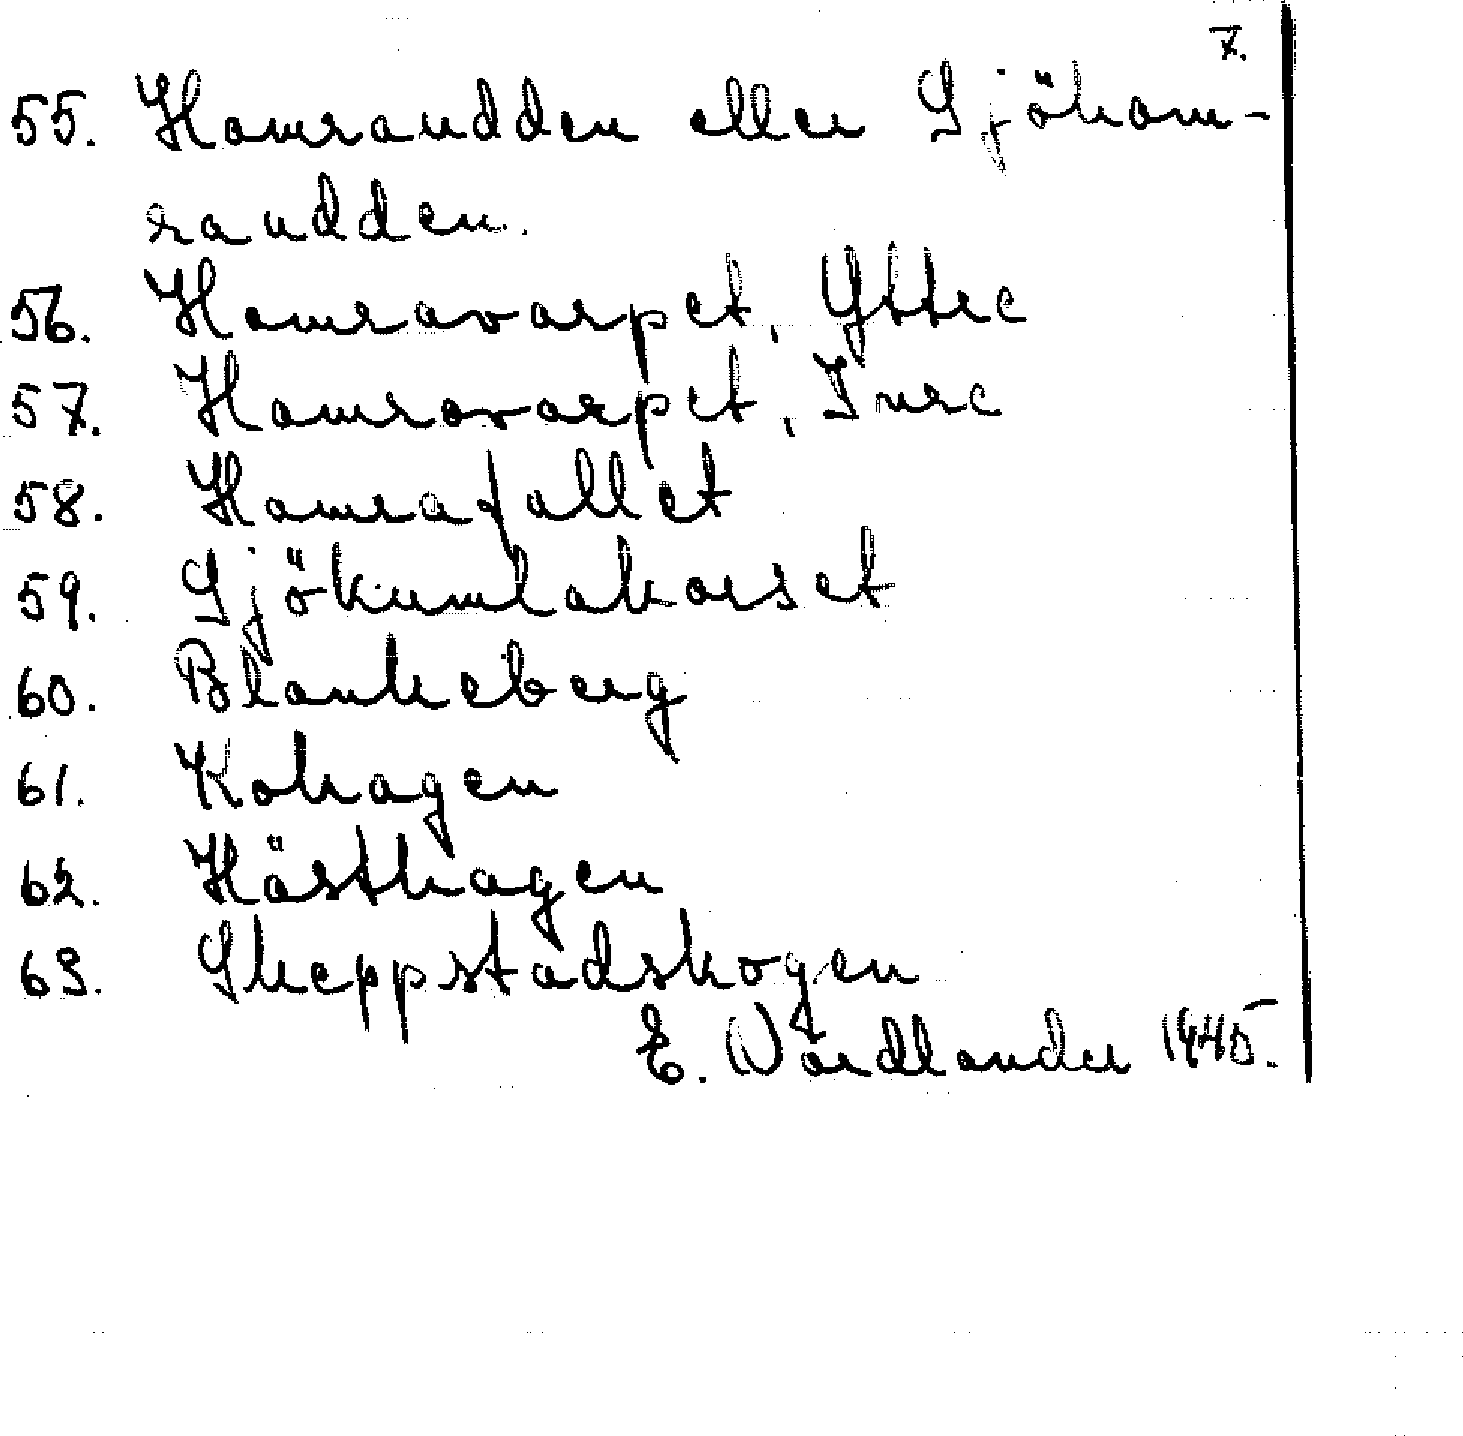 7.
55. Hamraudden eller Sjöham-
raudden.
56. Hamravarpet, Yttre
57. Hamravarpet, Inre
58. Hamrafallet
59. Sjökumlakorset
60. Blankeberg
61. Kohagen
62. Hästhagen
63. Skeppstadskogen
E. Nordlander 1945.